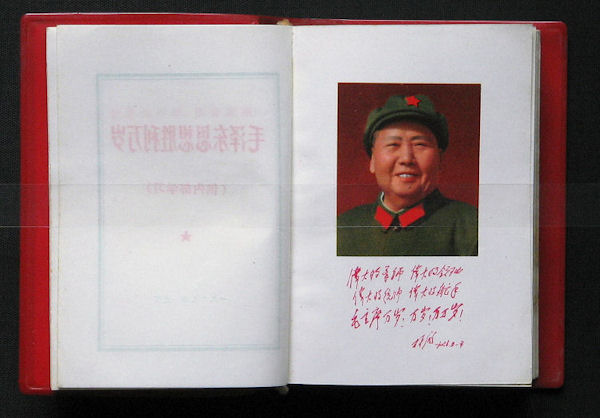 毛泽东思想胜利万岁
伟大的导师 伟大的领袖
伟大的统帅 伟大的舵手
毛主席万岁!万岁!万万岁!
林彪